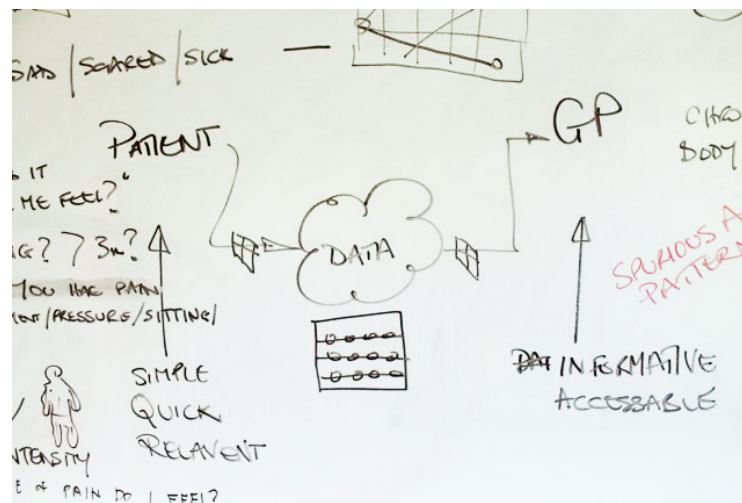 SAD / SCARED / SICK —
PATIENT
GP
BODY
IT
ME FEEL?"
DATA
? > 3m?
YOU HAC PAIN
/PRESSURE/SITTING/
SPURIOUS
PATTERN
SIMPLE
QUICK
RELAVENT
INFORMATIVE
ACCESSABLE
PAIN DO I FEEL?